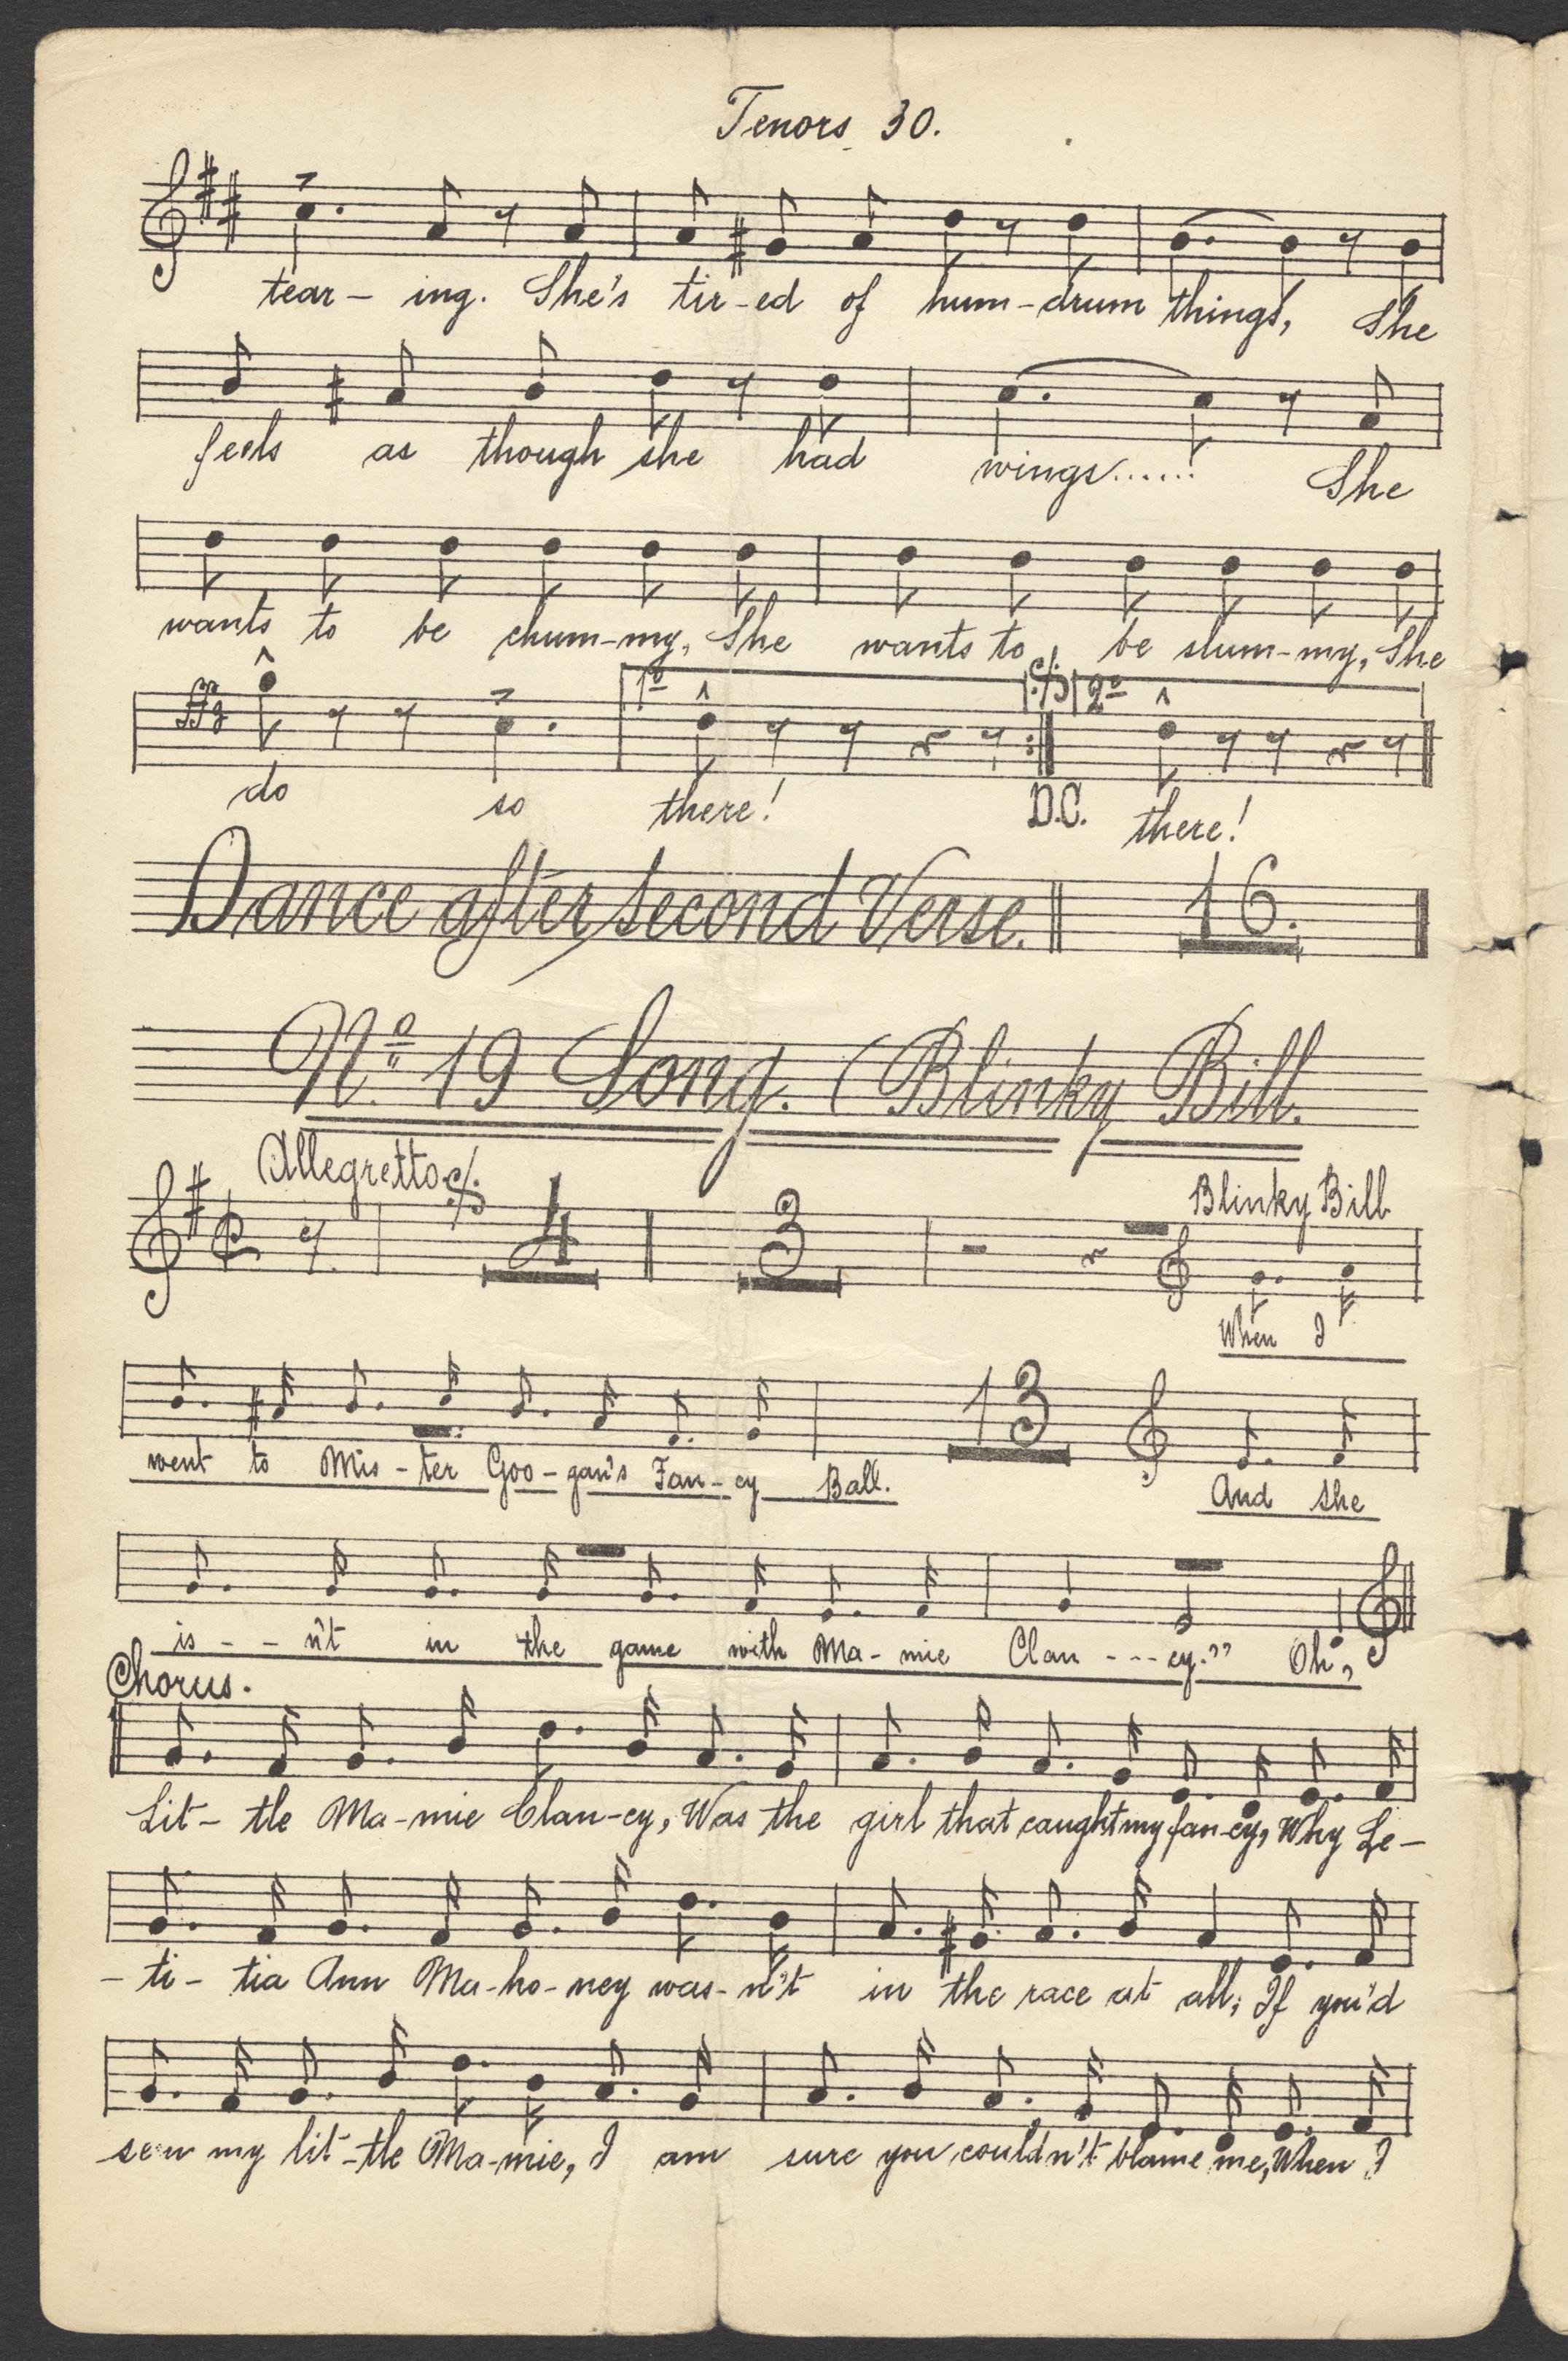 Tenors 30.
tear - ing. She's tir - ed of hum - drum things, She
feels as though she had wings......! She
wants to be chum - my, She wants to be slum - my, She
ffz 1º 2º
do so there! D.C. there!
Dance after second Verse. 16.
Nº 19 Song. (Blinky Bill.
Allegretto
4 3 Blinky Bill
When I
13
went to Mis - ter Goo - gan's Fan - cy Ball. And she
is - - n't in the game with Ma - mie Clan - - - cy." Oh,
Chorus.
Lit - tle Ma - mie Clan - cy, Was the girl that caught my fan - cy, Why Le -
- ti - tia Ann Ma - ho - ney was - n't in the race at all; If you'd
seen my lit - tle Ma - mie, I am sure you couldn't blame me, When I